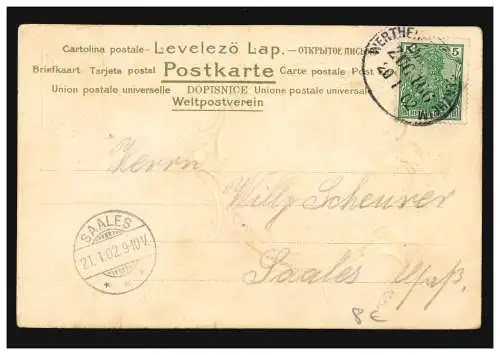 Cartolina postale- Levelező Lap. -ОТКРЫТОЕ ПИСЬ
Briefkaart Tarjeta postal Postkarte Carte postale Post
Union postale universelle DOPISNICE Unione postale universale
Weltpostverein
5
20 1 02
Herrn
Willy Scheurer
SAALES
21.1.02.9-10V.
Saales Elsaß.
8